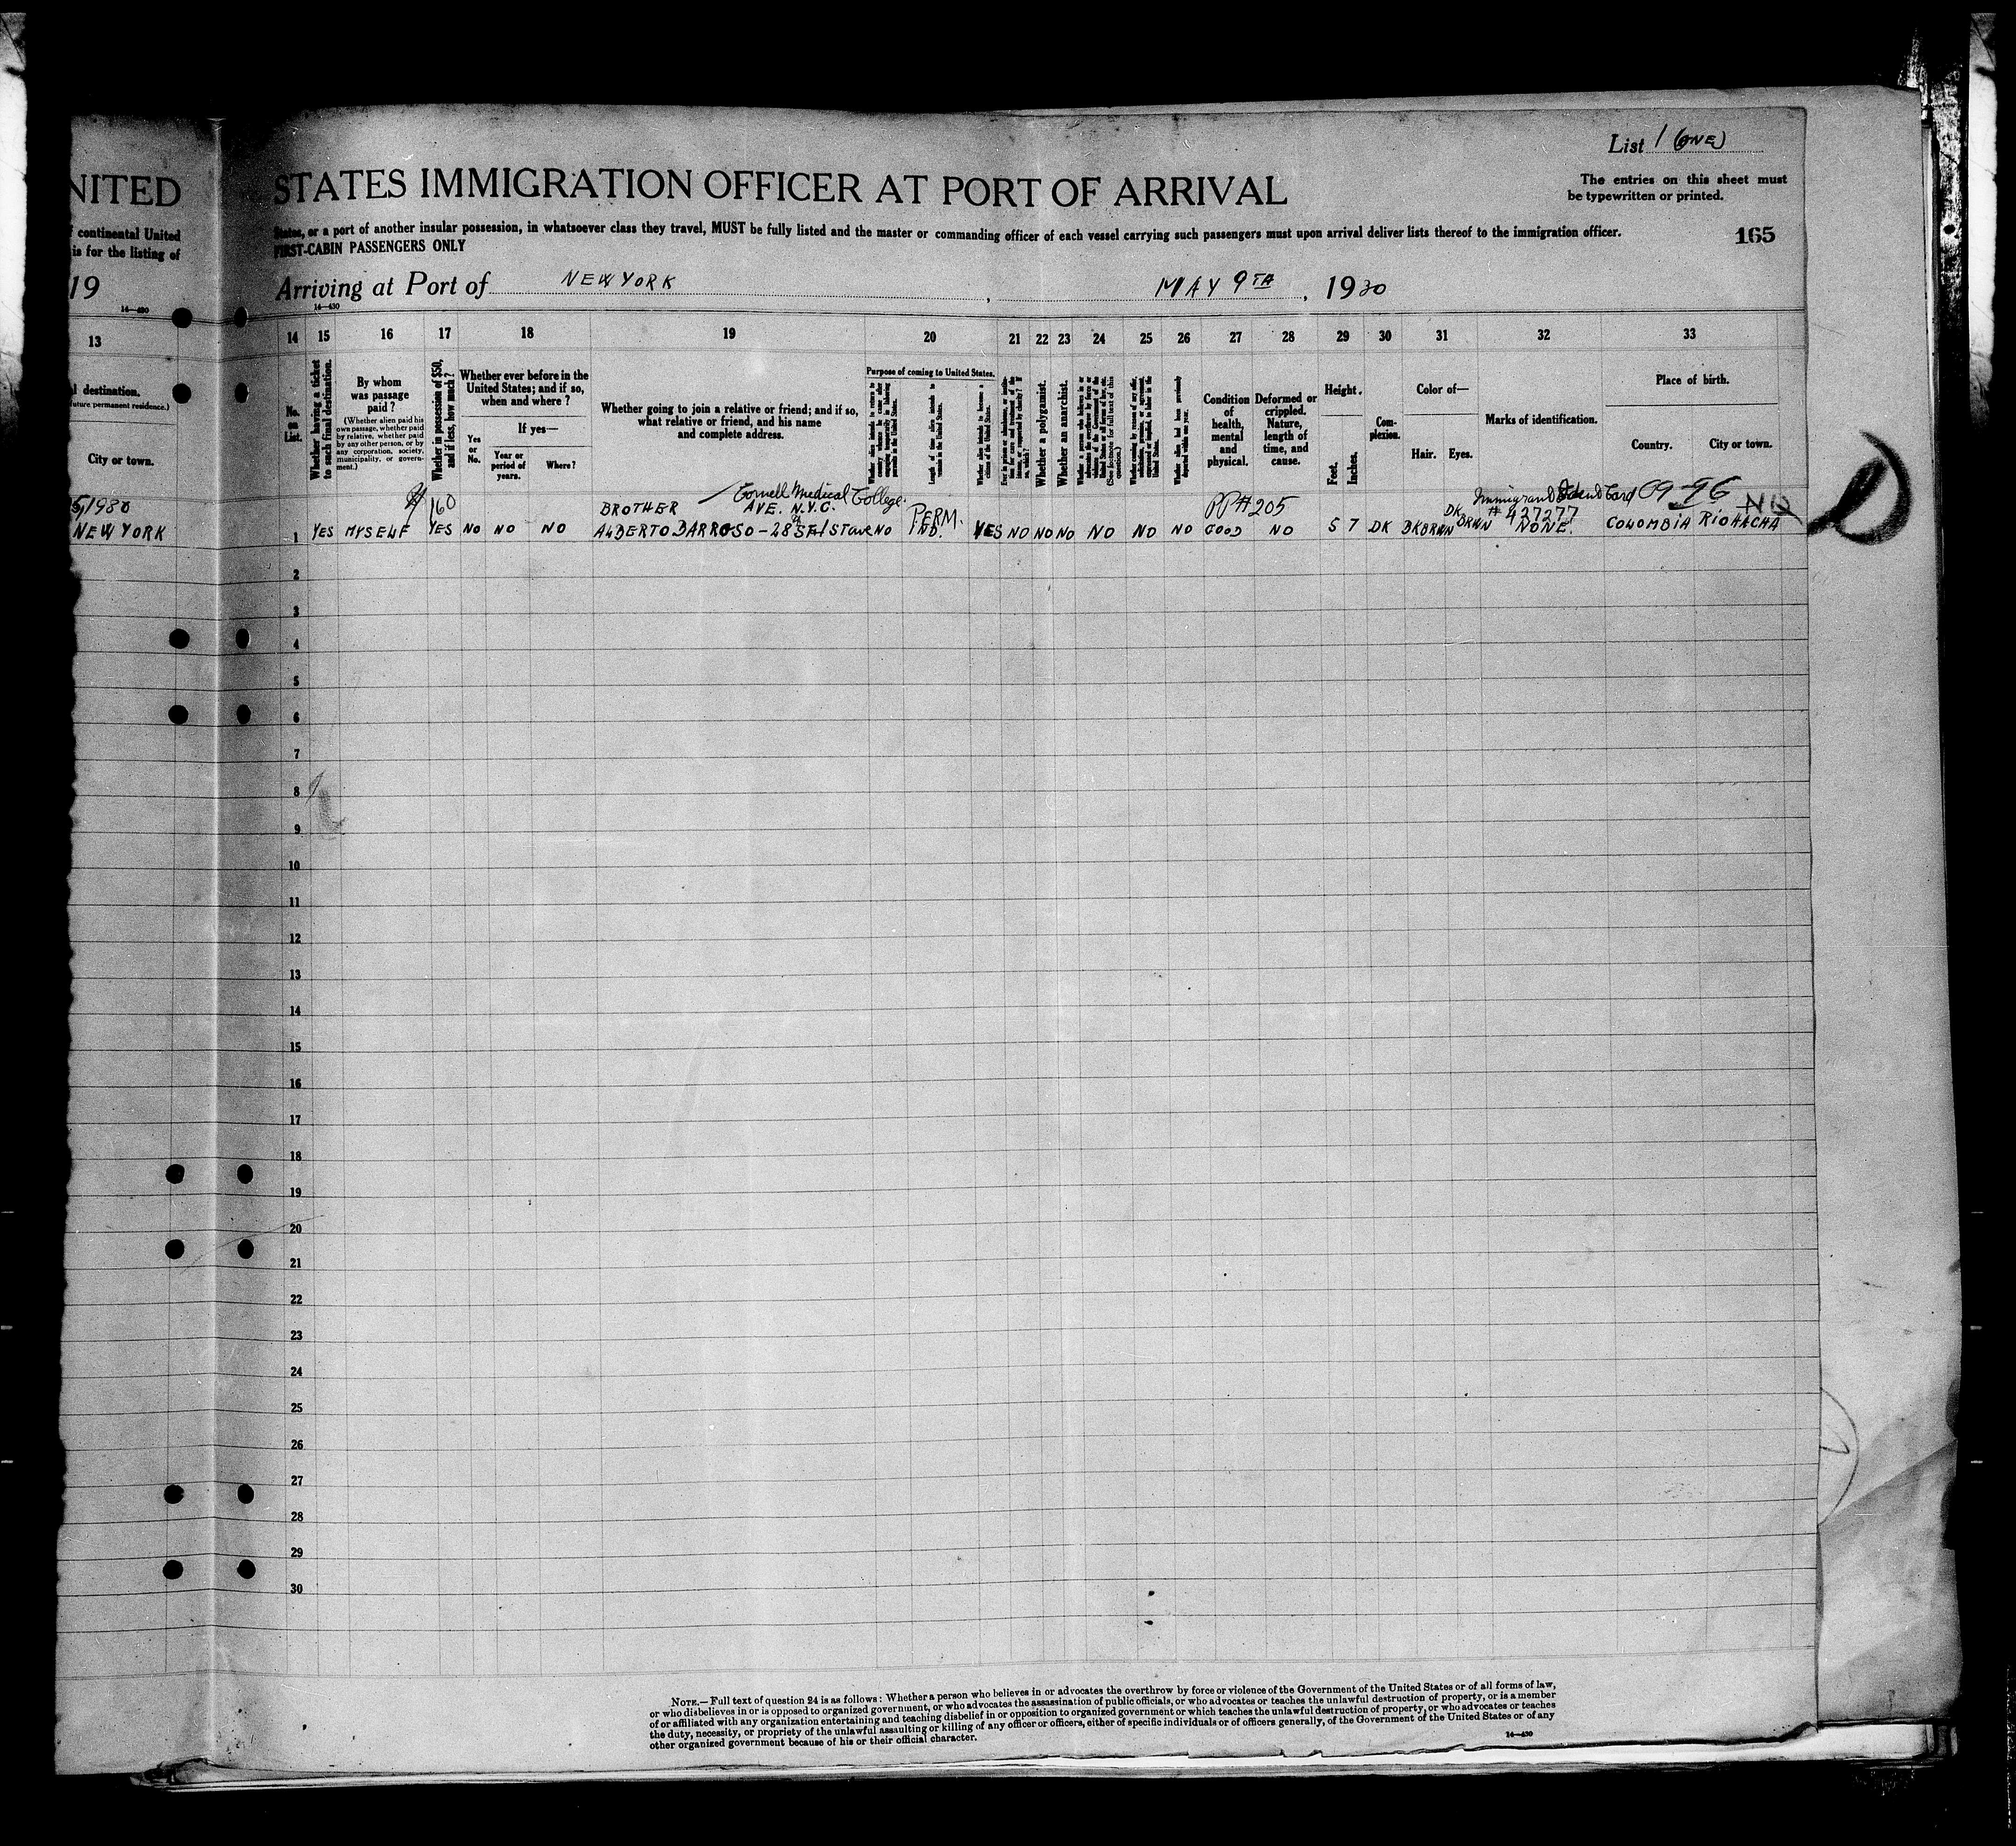 List 1 (ONE)
NITED
STATES IMMIGRATION OFFICER AT PORT OF ARRIVAL
The entries on this sheet must
be typewritten or printed.
continental United
is for the listing of
States, or a port of another insular possession, in whatsoever class they travel, MUST be fully listed and the master or commanding officer of each vessel carrying such passengers must upon arrival deliver lists thereof to the immigration officer.
FIRST-CABIN PASSENGERS ONLY
165
19
Arriving at Port of NEW YORK, MAY 9TH, 1930
14—430
14—430
13 14 15 16 17 18 19 20 21 22 23 24 25 26 27 28 29 30 31 32 33
l destination.
future permanent residence.)
City or town.
No. on List.
Whether having a ticket to such final destination.
By whom was passage paid?
(Whether alien paid his own passage, whether paid by relative, whether paid by any other person, or by any corporation, society, municipality, or government.)
Whether in possession of $50, and if less, how much?
Whether ever before in the United States; and if so, when and where?
Yes or No.
If yes—
Year or period of years.
Where?
Whether going to join a relative or friend; and if so, what relative or friend, and his name and complete address.
Purpose of coming to United States.
Length of time alien intends to remain in the United States.
Whether alien intends to become a citizen of the United States.
Whether a polygamist.
Whether an anarchist.
(See footnote for full text of this question.)
Condition of health, mental and physical.
Deformed or crippled. Nature, length of time, and cause.
Height.
Feet. Inches.
Complexion.
Color of—
Hair. Eyes.
Marks of identification.
Place of birth.
Country. City or town.
NEW YORK
$160
Cornell Medical College.
BROTHER AVE. N.Y.C.
PERM.
PP# 205
Immigrant Ident Card
# 427277
1 YES MYSELF YES NO NO NO ALBERTO BARROSO – 28 ST/1ST AVE NO IND. YES NO NO NO NO NO NO GOOD NO 5 7 DK DKBRWN DK BRWN NONE. COLOMBIA RIOHACHA
2
3
4
5
6
7
8
9
10
11
12
13
14
15
16
17
18
19
20
21
22
23
24
25
26
27
28
29
30
NOTE.—Full text of question 24 is as follows: Whether a person who believes in or advocates the overthrow by force or violence of the Government of the United States or of all forms of law,
or who disbelieves in or is opposed to organized government, or who advocates the assassination of public officials, or who advocates or teaches the unlawful destruction of property, or is a member
of or affiliated with any organization entertaining and teaching disbelief in or opposition to organized government or which teaches the unlawful destruction of property, or who advocates or teaches
the duty, necessity, or propriety of the unlawful assaulting or killing of any officer or officers, either of specific individuals or of officers generally, of the Government of the United States or of any
other organized government because of his or their official character.
14—430